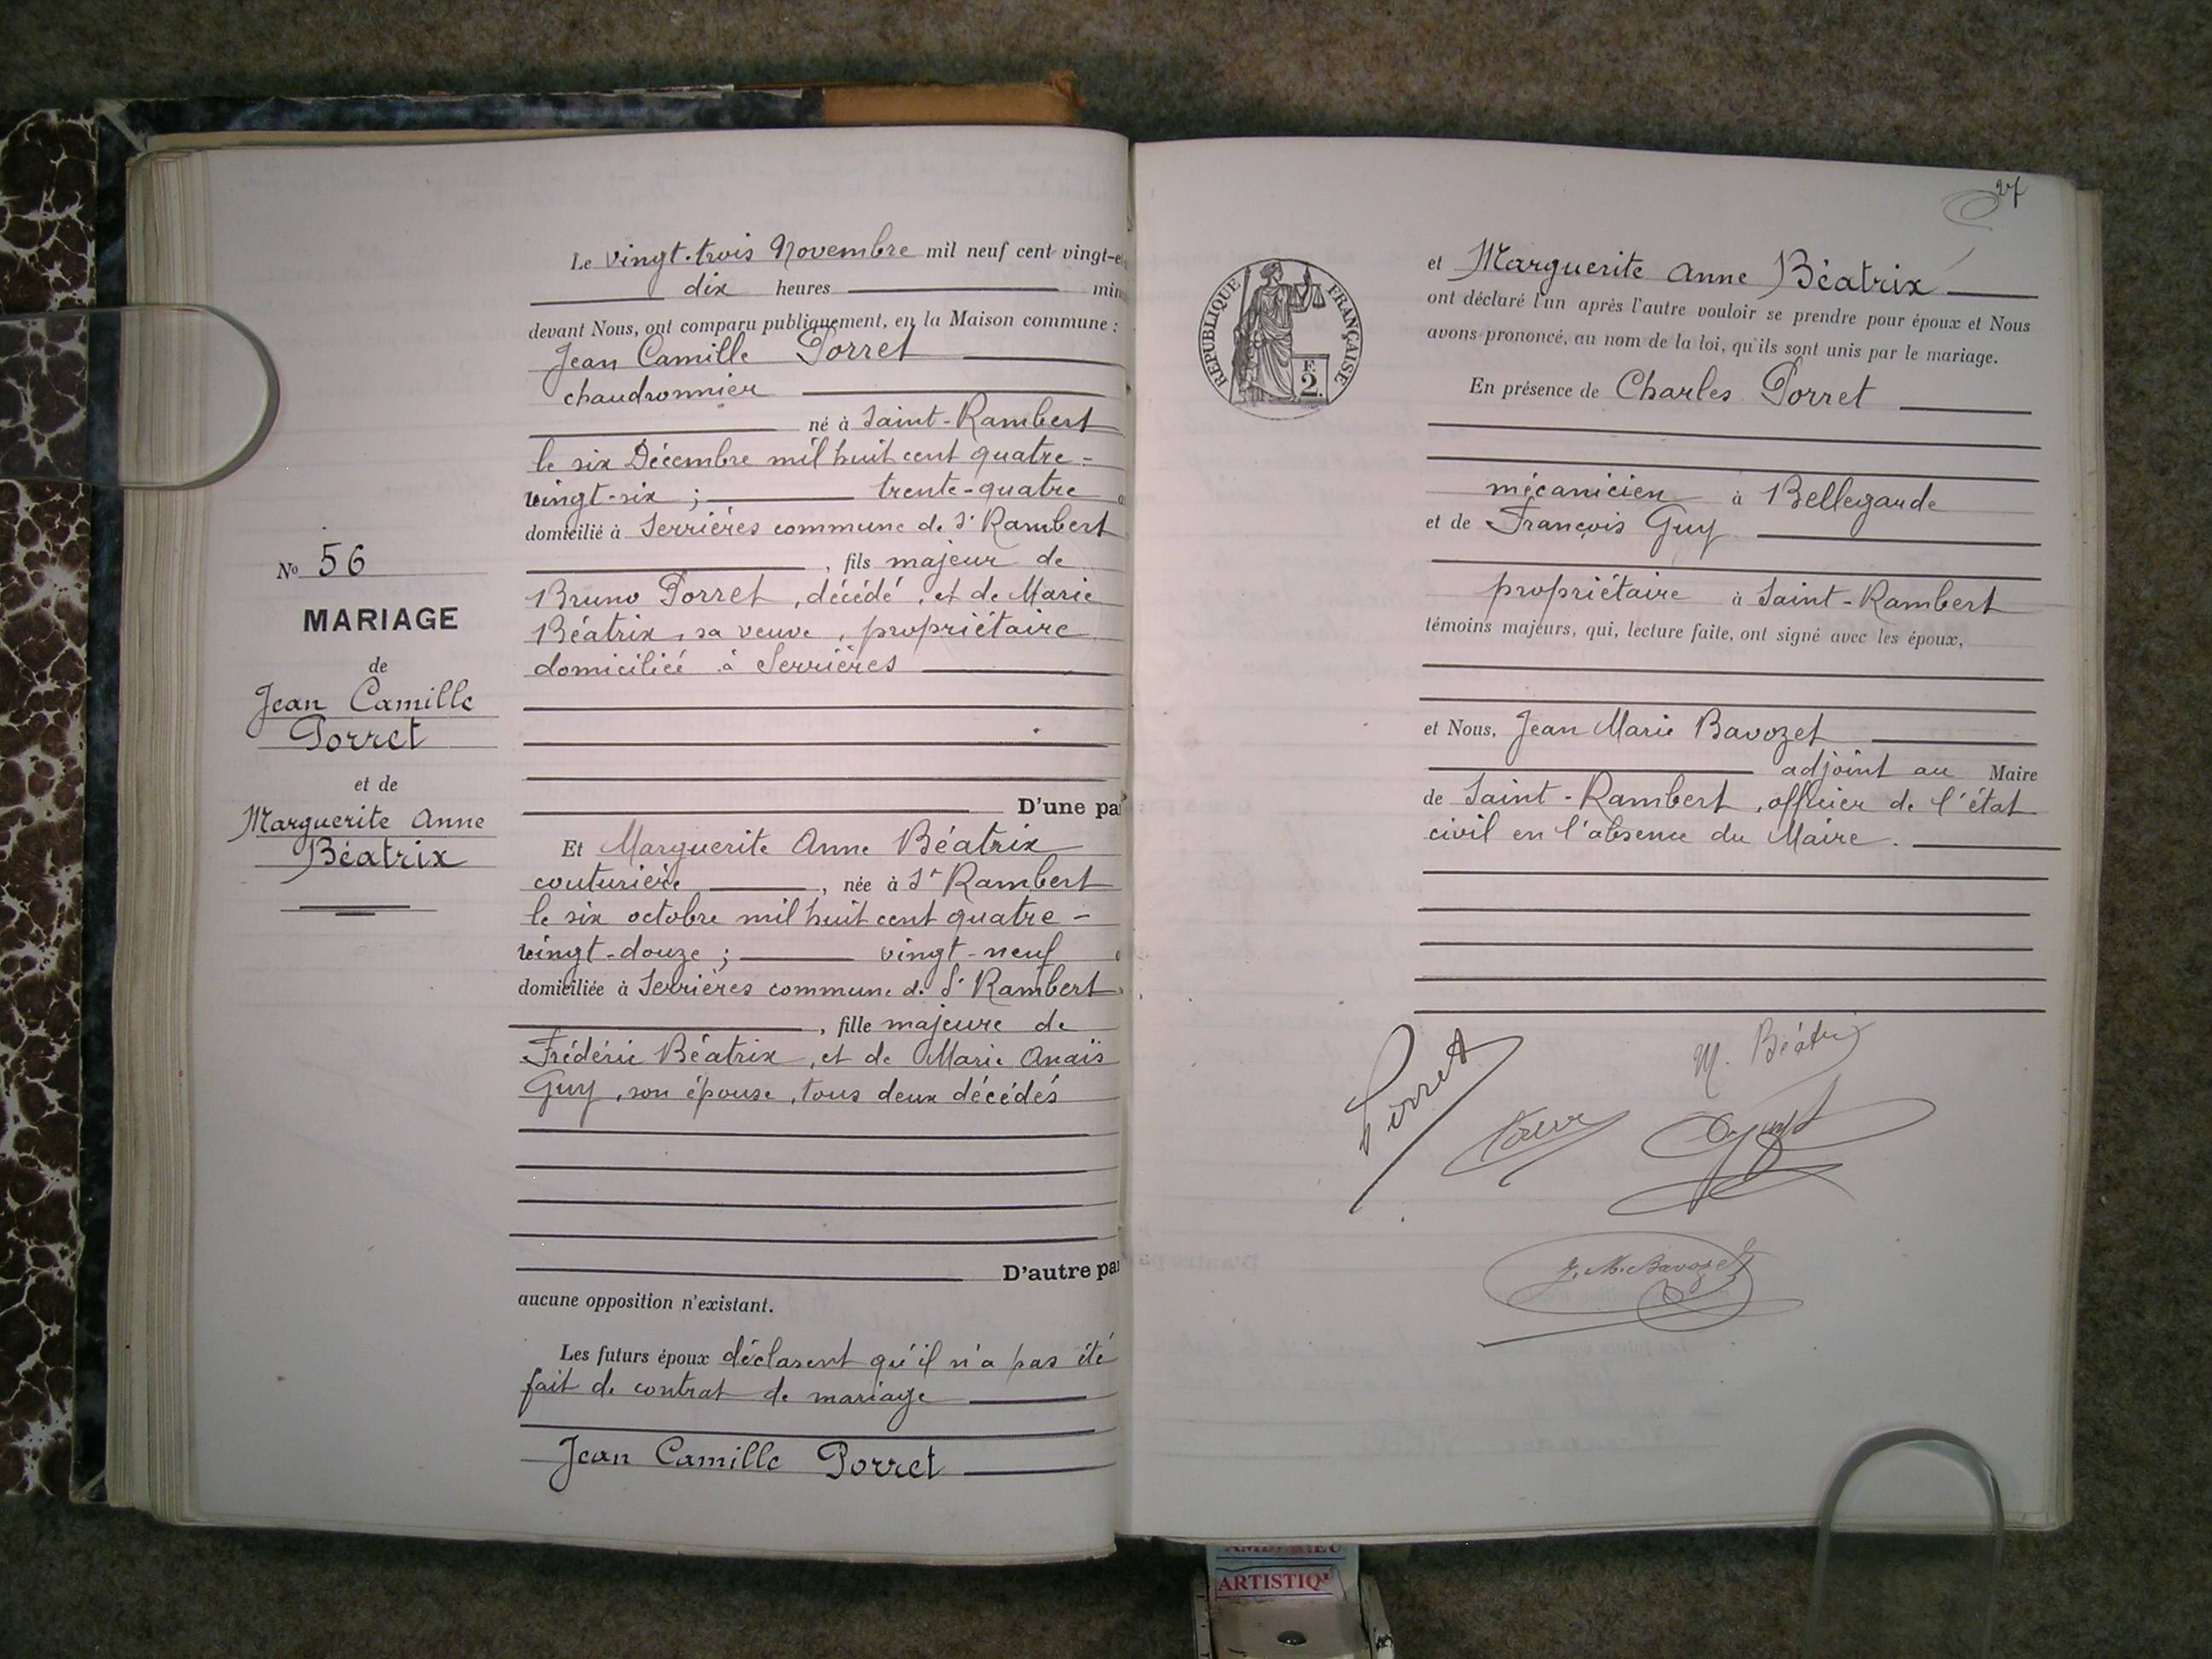 Le vingt-trois Novembre mil neuf cent vingt-e
dix heures min
devant Nous, ont comparu publiquement, en la Maison commune :
Jean Camille Porret
chaudronnier
né à Saint-Rambert
le six Décembre mil huit cent quatre-
vingt-six ; trente-quatre
domicilié à Serrières commune de St Rambert
, fils majeur de
Bruno Porret, décédé, et de Marie
Béatrix, sa veuve, propriétaire
domiciliée à Serrières
D'une pa
Et Marguerite Anne Béatrix
couturière, née à St Rambert
le six octobre mil huit cent quatre-
vingt-douze ; vingt-neuf
domiciliée à Serrières commune de St Rambert
, fille majeure de
Frédéric Béatrix, et de Marie Anaïs
Guy, son épouse, tous deux décédés
D'autre pa
aucune opposition n'existant.
Les futurs époux déclarent qu'il n'a pas été
fait de contrat de mariage
Jean Camille Porret
No 56
MARIAGE
de
Jean Camille
Porret
et de
Marguerite Anne
Béatrix
27
RÉPUBLIQUE FRANÇAISE
F.
2.
et Marguerite Anne Béatrix
ont déclaré l'un après l'autre vouloir se prendre pour époux et Nous
avons prononcé, au nom de la loi, qu'ils sont unis par le mariage.
En présence de Charles Porret
mécanicien à Bellegarde
et de François Guy
propriétaire à Saint-Rambert
témoins majeurs, qui, lecture faite, ont signé avec les époux,
et Nous, Jean Marie Bavozet
adjoint au Maire
de Saint-Rambert, officier de l'état
civil en l'absence du Maire.
Porret
M. Béatrix
J. M. Bavozet
ARTISTIQ